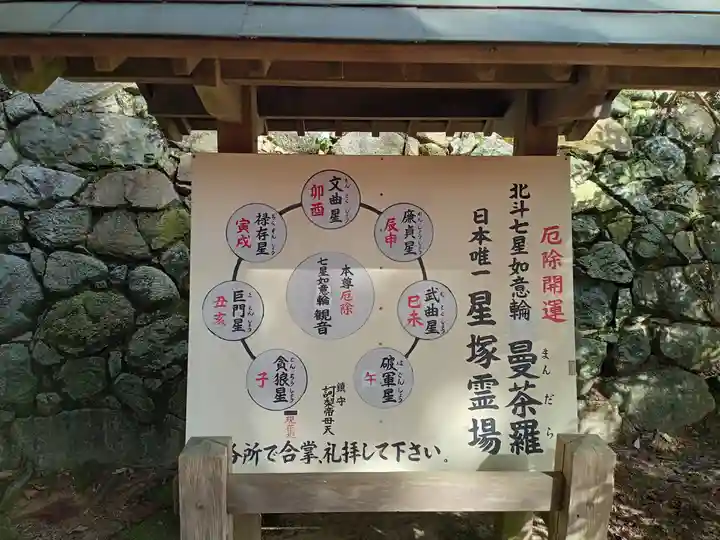 厄除開運
北斗七星如意輪 曼荼羅
まんだら
日本唯一 星塚霊場
文曲星
卯酉
廉貞星
辰申
武曲星
巳未
破軍星
はぐんしょう
午
本尊厄除
七星如意輪観音
禄存星
寅戌
巨門星
丑亥
貪狼星
子
鎮守
訶梨帝母天
各所で合掌、礼拝して下さい。